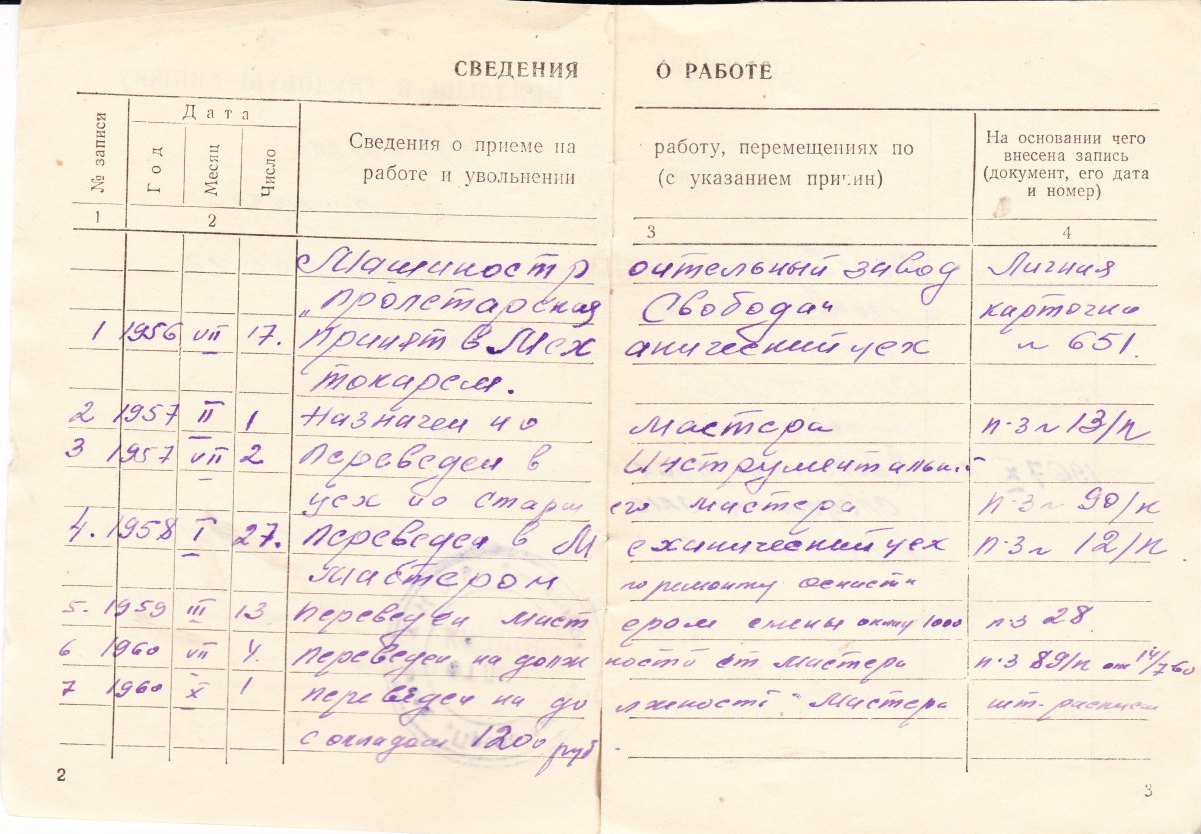 СВЕДЕНИЯ О РАБОТЕ
№ записи
Дата
Год
Месяц
Число
Сведения о приеме на работу, перемещениях по
работе и увольнении (с указанием причин)
На основании чего
внесена запись
(документ, его дата
и номер)
1 2 3 4
Машиностроительный завод Личная
„Пролетарская Свобода" карточка
1 1956 VII 17. Принят в Механический цех № 651.
токарем.
2 1957 II 1 Назначен ио мастера п-з № 13/п
3 1957 VII 2 Переведен в Инструментальный
цех ио старшего мастера п-з № 90/к
4. 1958 I 27. Переведен в Механический цех п-з № 12/п
Мастером по ремонту оснастки
5. 1959 III 13 Переведен мастером смены оклад 1000 п-з 28.
6 1960 VII 4. Переведен на должность ст мастера п-з 89/п от 14/7-60
7 1960 X 1 переведен на должность Мастера шт-распис
с окладом 1200 руб.
2
3